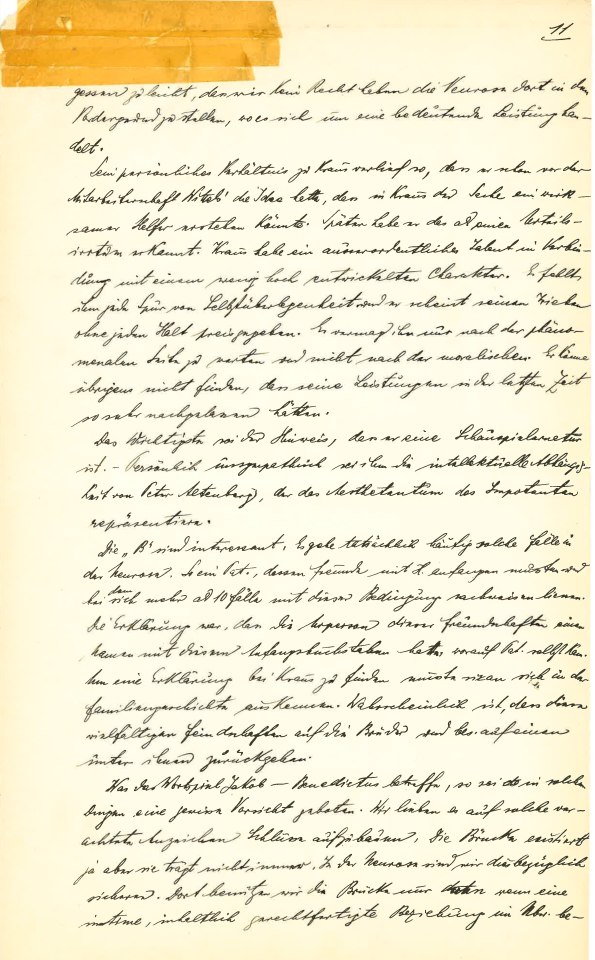 11
gessen zu leicht, dass wir kein Recht haben die Neurose dort in den
Vordergrund zu stellen, wo es sich um eine bedeutende Leistung han-
delt.
Sein persönliches Verhältnis zu Kraus verlief so, dass er schon vor der
Mitarbeiterschaft Wittels' die Idee hatte, dass in Kraus der Sache ein wirk-
samer Helfer erstehen könnte. Später habe er das als einen Urteils-
irrtum erkannt. Kraus habe ein ausserordentliches Talent in Verbin-
dung mit einem wenig hoch entwickelten Charakter. Es fehlt
ihm jede Spur von Selbstüberlegenheit und er scheint seinen Trieben
ohne jeden Halt preisgegeben. Er vermag ihn nur nach der phäno-
menalen Seite zu werten und nicht nach der moralischen. Er könne
übrigens nicht finden, dass seine Leistungen in der letzten Zeit
so sehr nachgelassen hätten.
Das Wichtigste sei der Hinweis, dass er eine Schauspielernatur
ist. – Persönlich unsympathisch sei ihm die intellektuelle Abhängig-
keit von Peter Altenberg, der das Aesthetentum des Impotenten
repräsentiere.
Die „B" sind interessant. Es gebe tatsächlich häufig solche Fälle in
der Neurose. So ein Pat., dessen Freunde mit L. anfangen mussten und
bei dem sich mehr als 10 Fälle mit dieser Bedingung nachweisen liessen.
Die Erklärung war, dass die Urperson dieser Freundschaften einen
Namen mit diesem Anfangsbuchstaben hatte, worauf Pat. selbst kam.
Um eine Erklärung bei Kraus zu finden müsste man sich in der
Familiengeschichte auskennen. Wahrscheinlich ist, dass diese
vielfältigen Feindschaften auf die Brüder und bes. auf einen
unter ihnen zurückgehen.
Was das Wortspiel Jakob – Benedictus betreffe, so sei da in solchen
Dingen eine gewisse Vorsicht geboten. Wir lieben es auf solche ver-
achtete Anzeichen Schlüsse aufzubauen. Die Brücke existiert
ja aber sie trägt nicht immer. In der Neurose sind wir diesbezüglich
sicherer. Dort benützen wir die Brücke nur wenn eine
intime, inhaltlich gerechtfertigte Beziehung im Ubw. be-